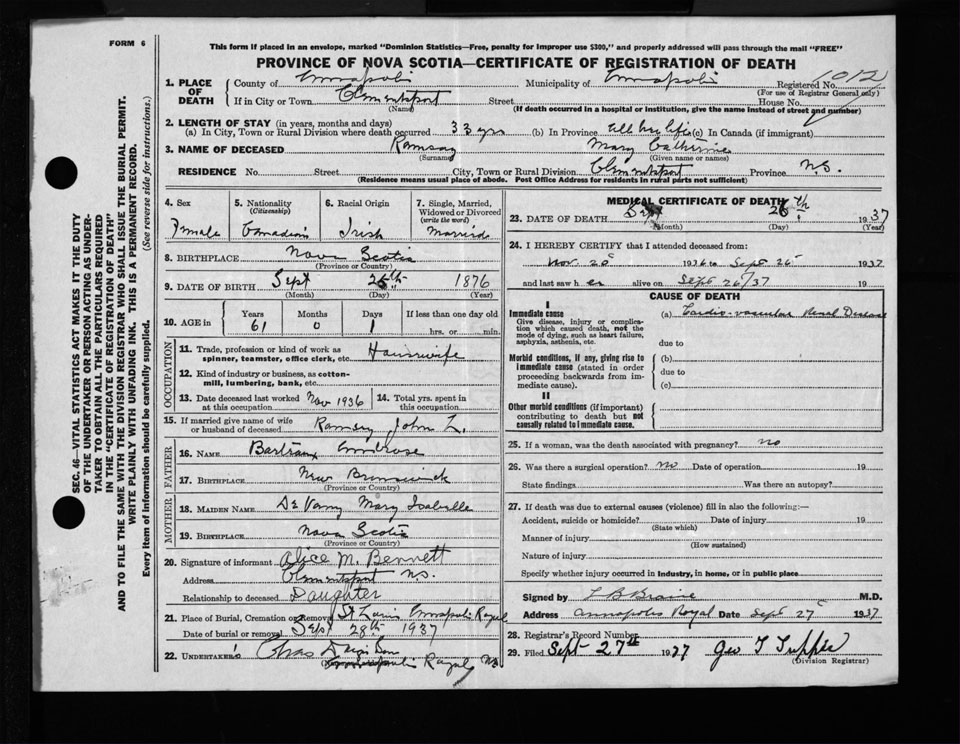 FORM 6
This form if placed in an envelope, marked "Dominion Statistics—Free, penalty for improper use $300," and properly addressed will pass through the mail "FREE"
PROVINCE OF NOVA SCOTIA—CERTIFICATE OF REGISTRATION OF DEATH
1. PLACE OF DEATH County of Annapolis Municipality of Annapolis Registered No. 1012
(For use of Registrar General only)
If in City or Town Clementsport Street House No.
(Name) (If death occurred in a hospital or institution, give the name instead of street and number)
2. LENGTH OF STAY (in years, months and days)
(a) In City, Town or Rural Division where death occurred 33 yrs (b) In Province All her life (c) In Canada (if immigrant)
3. NAME OF DECEASED Ramsay Mary Catherine
(Surname) (Given name or names)
RESIDENCE No. Street City, Town or Rural Division Clementsport Province N.S.
(Residence means usual place of abode. Post Office Address for residents in rural parts not sufficient)
SEC. 46—VITAL STATISTICS ACT MAKES IT THE DUTY
OF THE UNDERTAKER OR PERSON ACTING AS UNDER-
TAKER TO OBTAIN ALL THE PARTICULARS REQUIRED
IN THE "CERTIFICATE OF REGISTRATION OF DEATH"
AND TO FILE THE SAME WITH THE DIVISION REGISTRAR WHO SHALL ISSUE THE BURIAL PERMIT.
WRITE PLAINLY WITH UNFADING INK. THIS IS A PERMANENT RECORD.
Every item of information should be carefully supplied. (See reverse side for instructions.)
4. Sex 5. Nationality 6. Racial Origin 7. Single, Married,
(Citizenship) Widowed or Divorced
(write the word)
Female Canadian Irish Married
8. BIRTHPLACE Nova Scotia
(Province or Country)
9. DATE OF BIRTH Sept 25th 1876
(Month) (Day) (Year)
10. AGE in Years Months Days If less than one day old
61 0 1 hrs. or min.
OCCUPATION
11. Trade, profession or kind of work as
spinner, teamster, office clerk, etc. Housewife
12. Kind of industry or business, as cotton-
mill, lumbering, bank, etc.
13. Date deceased last worked at this occupation Nov 1936 14. Total yrs. spent in this occupation
15. If married give name of wife
or husband of deceased Ramsay John L.
FATHER
16. NAME Bartraux Ambrose
17. BIRTHPLACE New Brunswick
(Province or Country)
MOTHER
18. MAIDEN NAME Mary Isabella
19. BIRTHPLACE Nova Scotia
(Province or Country)
20. Signature of informant Alice M. Bennett
Address Clementsport N.S.
Relationship to deceased Daughter
21. Place of Burial, Cremation or Removal St Louis Annapolis Royal
Date of burial or removal Sept 28th 1937
22. UNDERTAKER'S Chas
Annapolis Royal NS
MEDICAL CERTIFICATE OF DEATH
23. DATE OF DEATH Sept 26th 1937
(Month) (Day) (Year)
24. I HEREBY CERTIFY that I attended deceased from:
Nov. 20 1936 to Sept 26 1937
and last saw her alive on Sept 26/37 19
CAUSE OF DEATH
I
Immediate cause (a) Cardio-vascular Renal Disease
Give disease, injury or compli-
cation which caused death, not the
mode of dying, such as heart failure,
asphyxia, asthenia, etc. due to
Morbid conditions, if any, giving rise to (b)
immediate cause (stated in order due to
proceeding backwards from im-
mediate cause). (c)
II
Other morbid conditions (if important)
contributing to death but not
causally related to immediate cause.
25. If a woman, was the death associated with pregnancy? no
26. Was there a surgical operation? no Date of operation 19
State findings Was there an autopsy?
27. If death was due to external causes (violence) fill in also the following:—
Accident, suicide or homicide? Date of injury 19
(State which)
Manner of injury
(How sustained)
Nature of injury
Specify whether injury occurred in industry, in home, or in public place
Signed by L B Braine M.D.
Address Annapolis Royal Date Sept 27 1937
28. Registrar's Record Number
29. Filed Sept 27th 1937 Geo T Tupper
(Division Registrar)